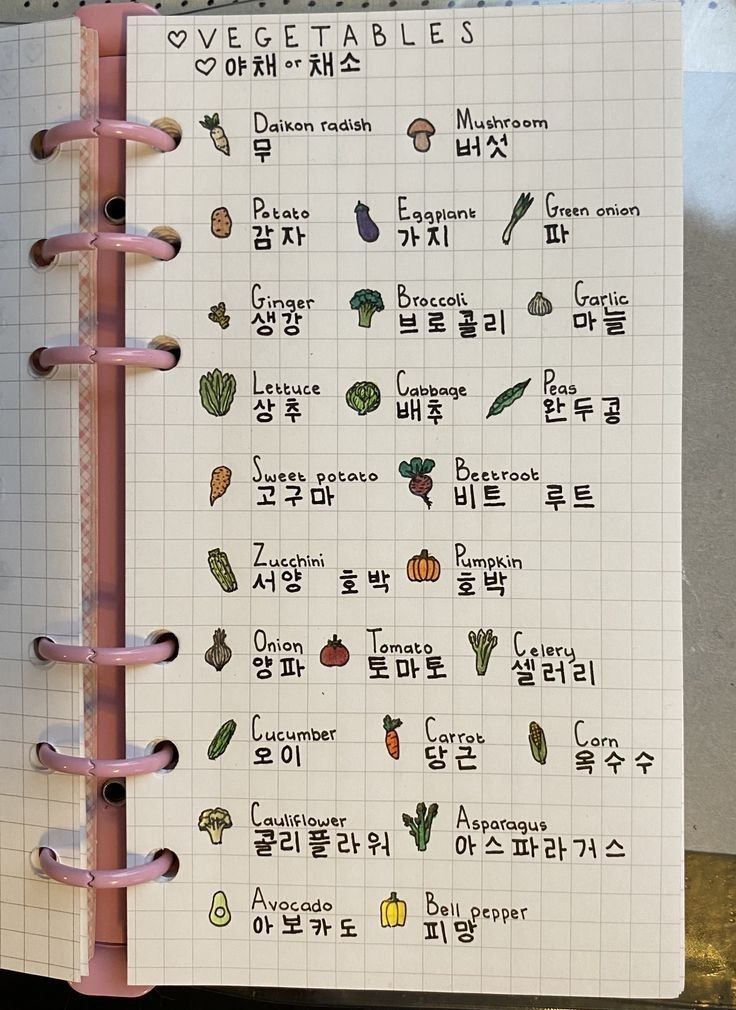 ♡ VEGETABLES
♡ 야채 or 채소
Daikon radish
무
Mushroom
버섯
Potato
감자
Eggplant
가지
Green onion
파
Ginger
생강
Broccoli
브로콜리
Garlic
마늘
Lettuce
상추
Cabbage
배추
Peas
완두콩
Sweet potato
고구마
Beetroot
비트 루트
Zucchini
서양 호박
Pumpkin
호박
Onion
양파
Tomato
토마토
Celery
셀러리
Cucumber
오이
Carrot
당근
Corn
옥수수
Cauliflower
콜리플라워
Asparagus
아스파라거스
Avocado
아보카도
Bell pepper
피망